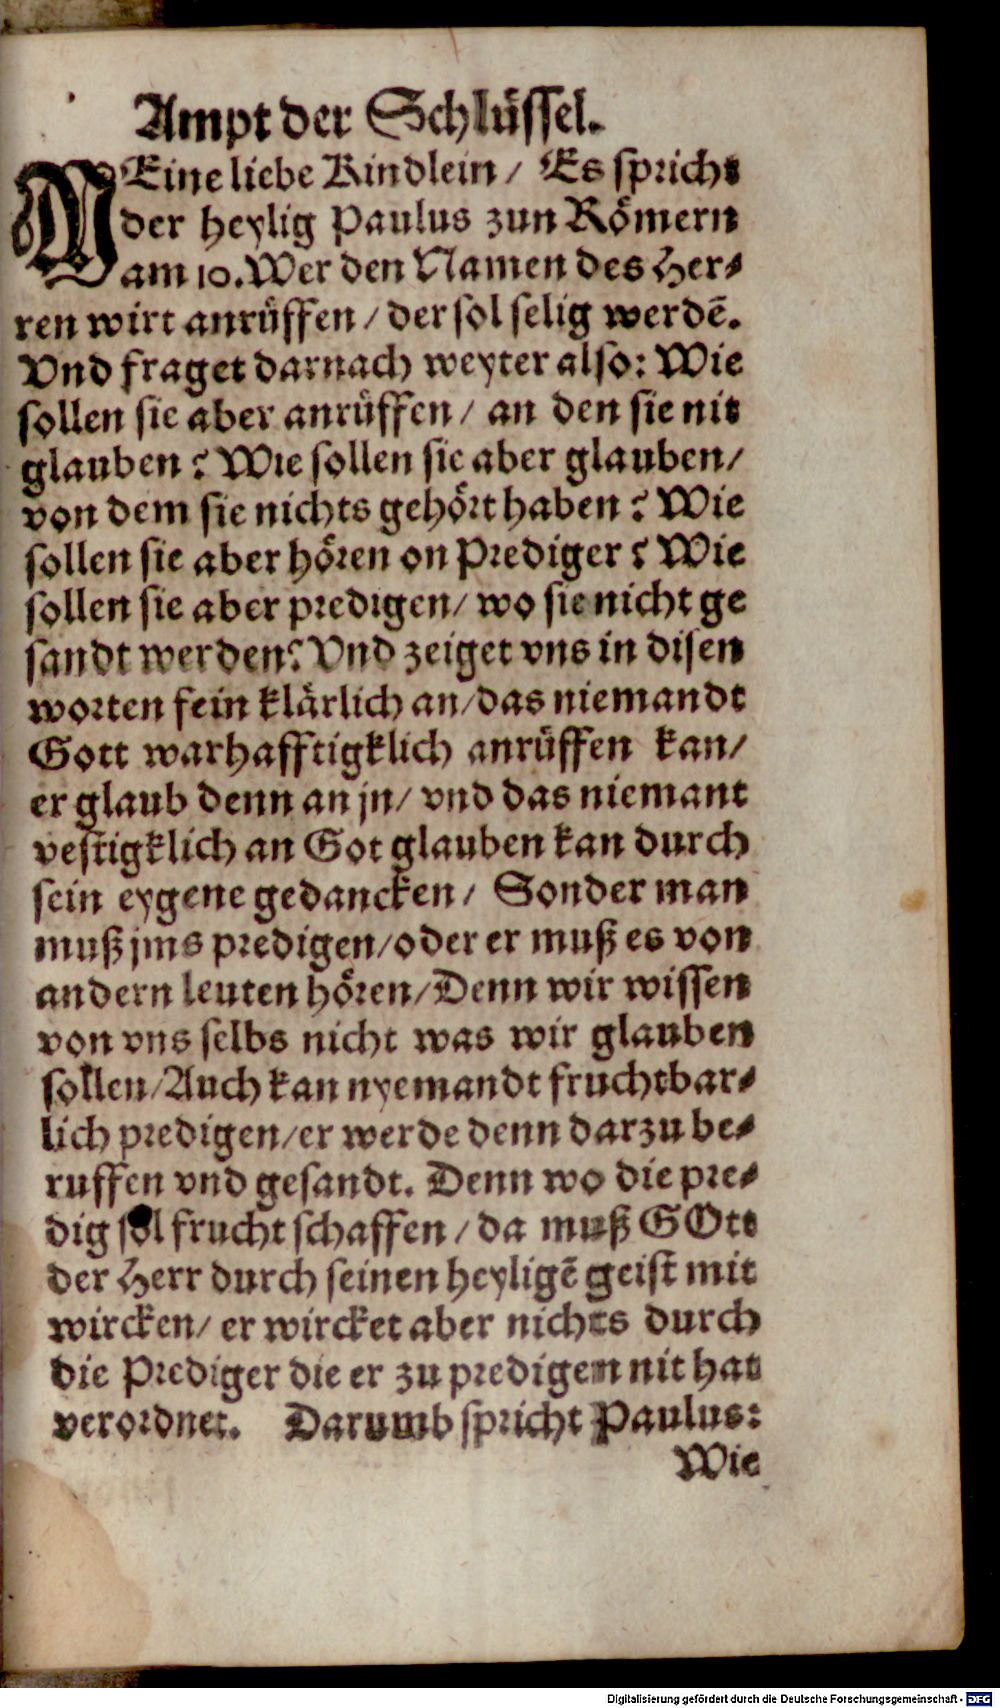 Ampt der Schlüssel.
MEine liebe Kindlein / Es spricht
der heylig Paulus zun Römern
am 10. Wer den Namen des Her-
ren wirt anrüffen / der sol selig werdē.
Vnd fraget darnach weyter also: Wie
sollen sie aber anrüffen / an den sie nit
glauben? Wie sollen sie aber glauben /
von dem sie nichts gehört haben? Wie
sollen sie aber hören on Prediger? Wie
sollen sie aber predigen / wo sie nicht ge
sandt werden? Vnd zeiget vns in disen
worten fein klärlich an / das niemandt
Gott warhafftigklich anrüffen kan /
er glaub denn an jn / vnd das niemant
vestigklich an Got glauben kan durch
sein eygene gedancken / Sonder man
muß jms predigen / oder er muß es von
andern leuten hören / Denn wir wissen
von vns selbs nicht was wir glauben
sollen / Auch kan nyemandt fruchtbar-
lich predigen / er werde denn darzu be-
ruffen vnd gesandt. Denn wo die pre-
dig sol frucht schaffen / da muß GOtt
der Herr durch seinen heyligē geist mit
wircken / er wircket aber nichts durch
die Prediger die er zu predigen nit hat
verordnet. Darumb spricht Paulus:
Wie
Digitalisierung gefördert durch die Deutsche Forschungsgemeinschaft - DFG